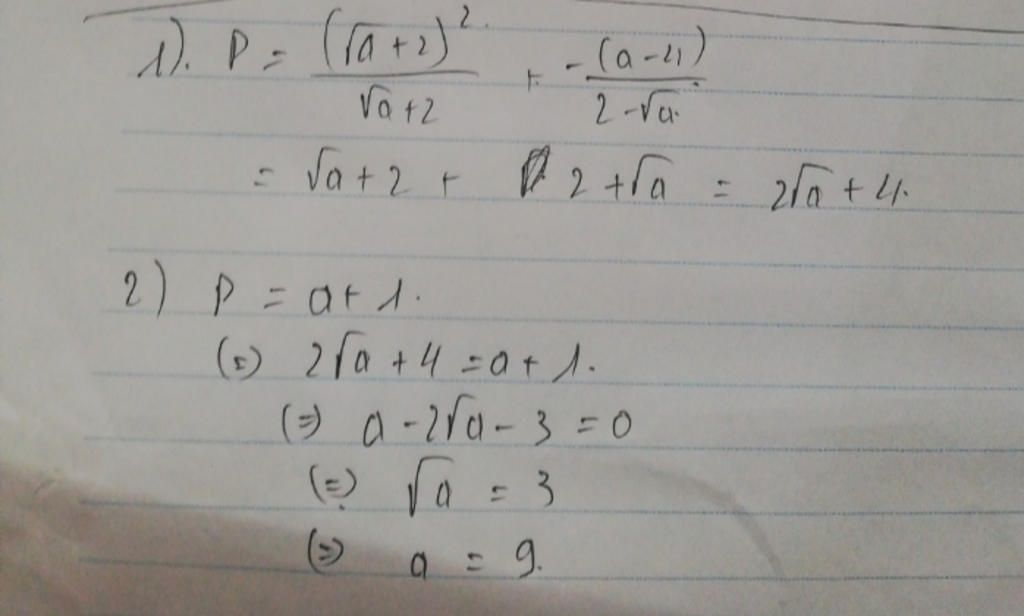 1). P = (√a + 2)² / (√a + 2) + -(a - 4) / (2 - √a)
= √a + 2 + 2 + √a = 2√a + 4.
2) P = a + 1.
(=) 2√a + 4 = a + 1.
(=) a - 2√a - 3 = 0
(=) √a = 3
(=) a = 9.